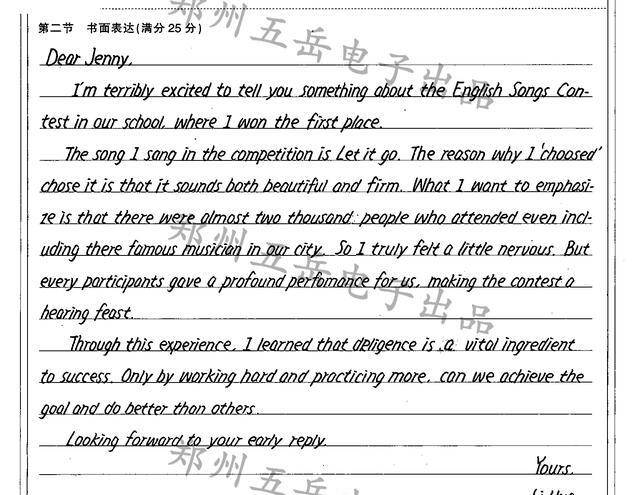 第二节 书面表达(满分25分)
Dear Jenny,
I'm terribly excited to tell you something about the English Songs Con-
test in our school, where I won the first place.
The song I sang in the competition is Let it go. The reason why I 'choosed'
chose it is that it sounds both beautiful and firm. What I want to emphasi-
ze is that there were almost two thousand people who attended even incl-
uding there famous musician in our city. So I truly felt a little nervous. But
every participants gave a profound perfomance for us, making the contest a
hearing feast.
Through this experience, I learned that deligence is a vital ingredient
to success. Only by working hard and practicing more, can we achieve the
goal and do better than others.
Looking forward to your early reply.
Yours,
郑州五岳电子出品
郑州五岳电子出品
郑州五岳电子出品